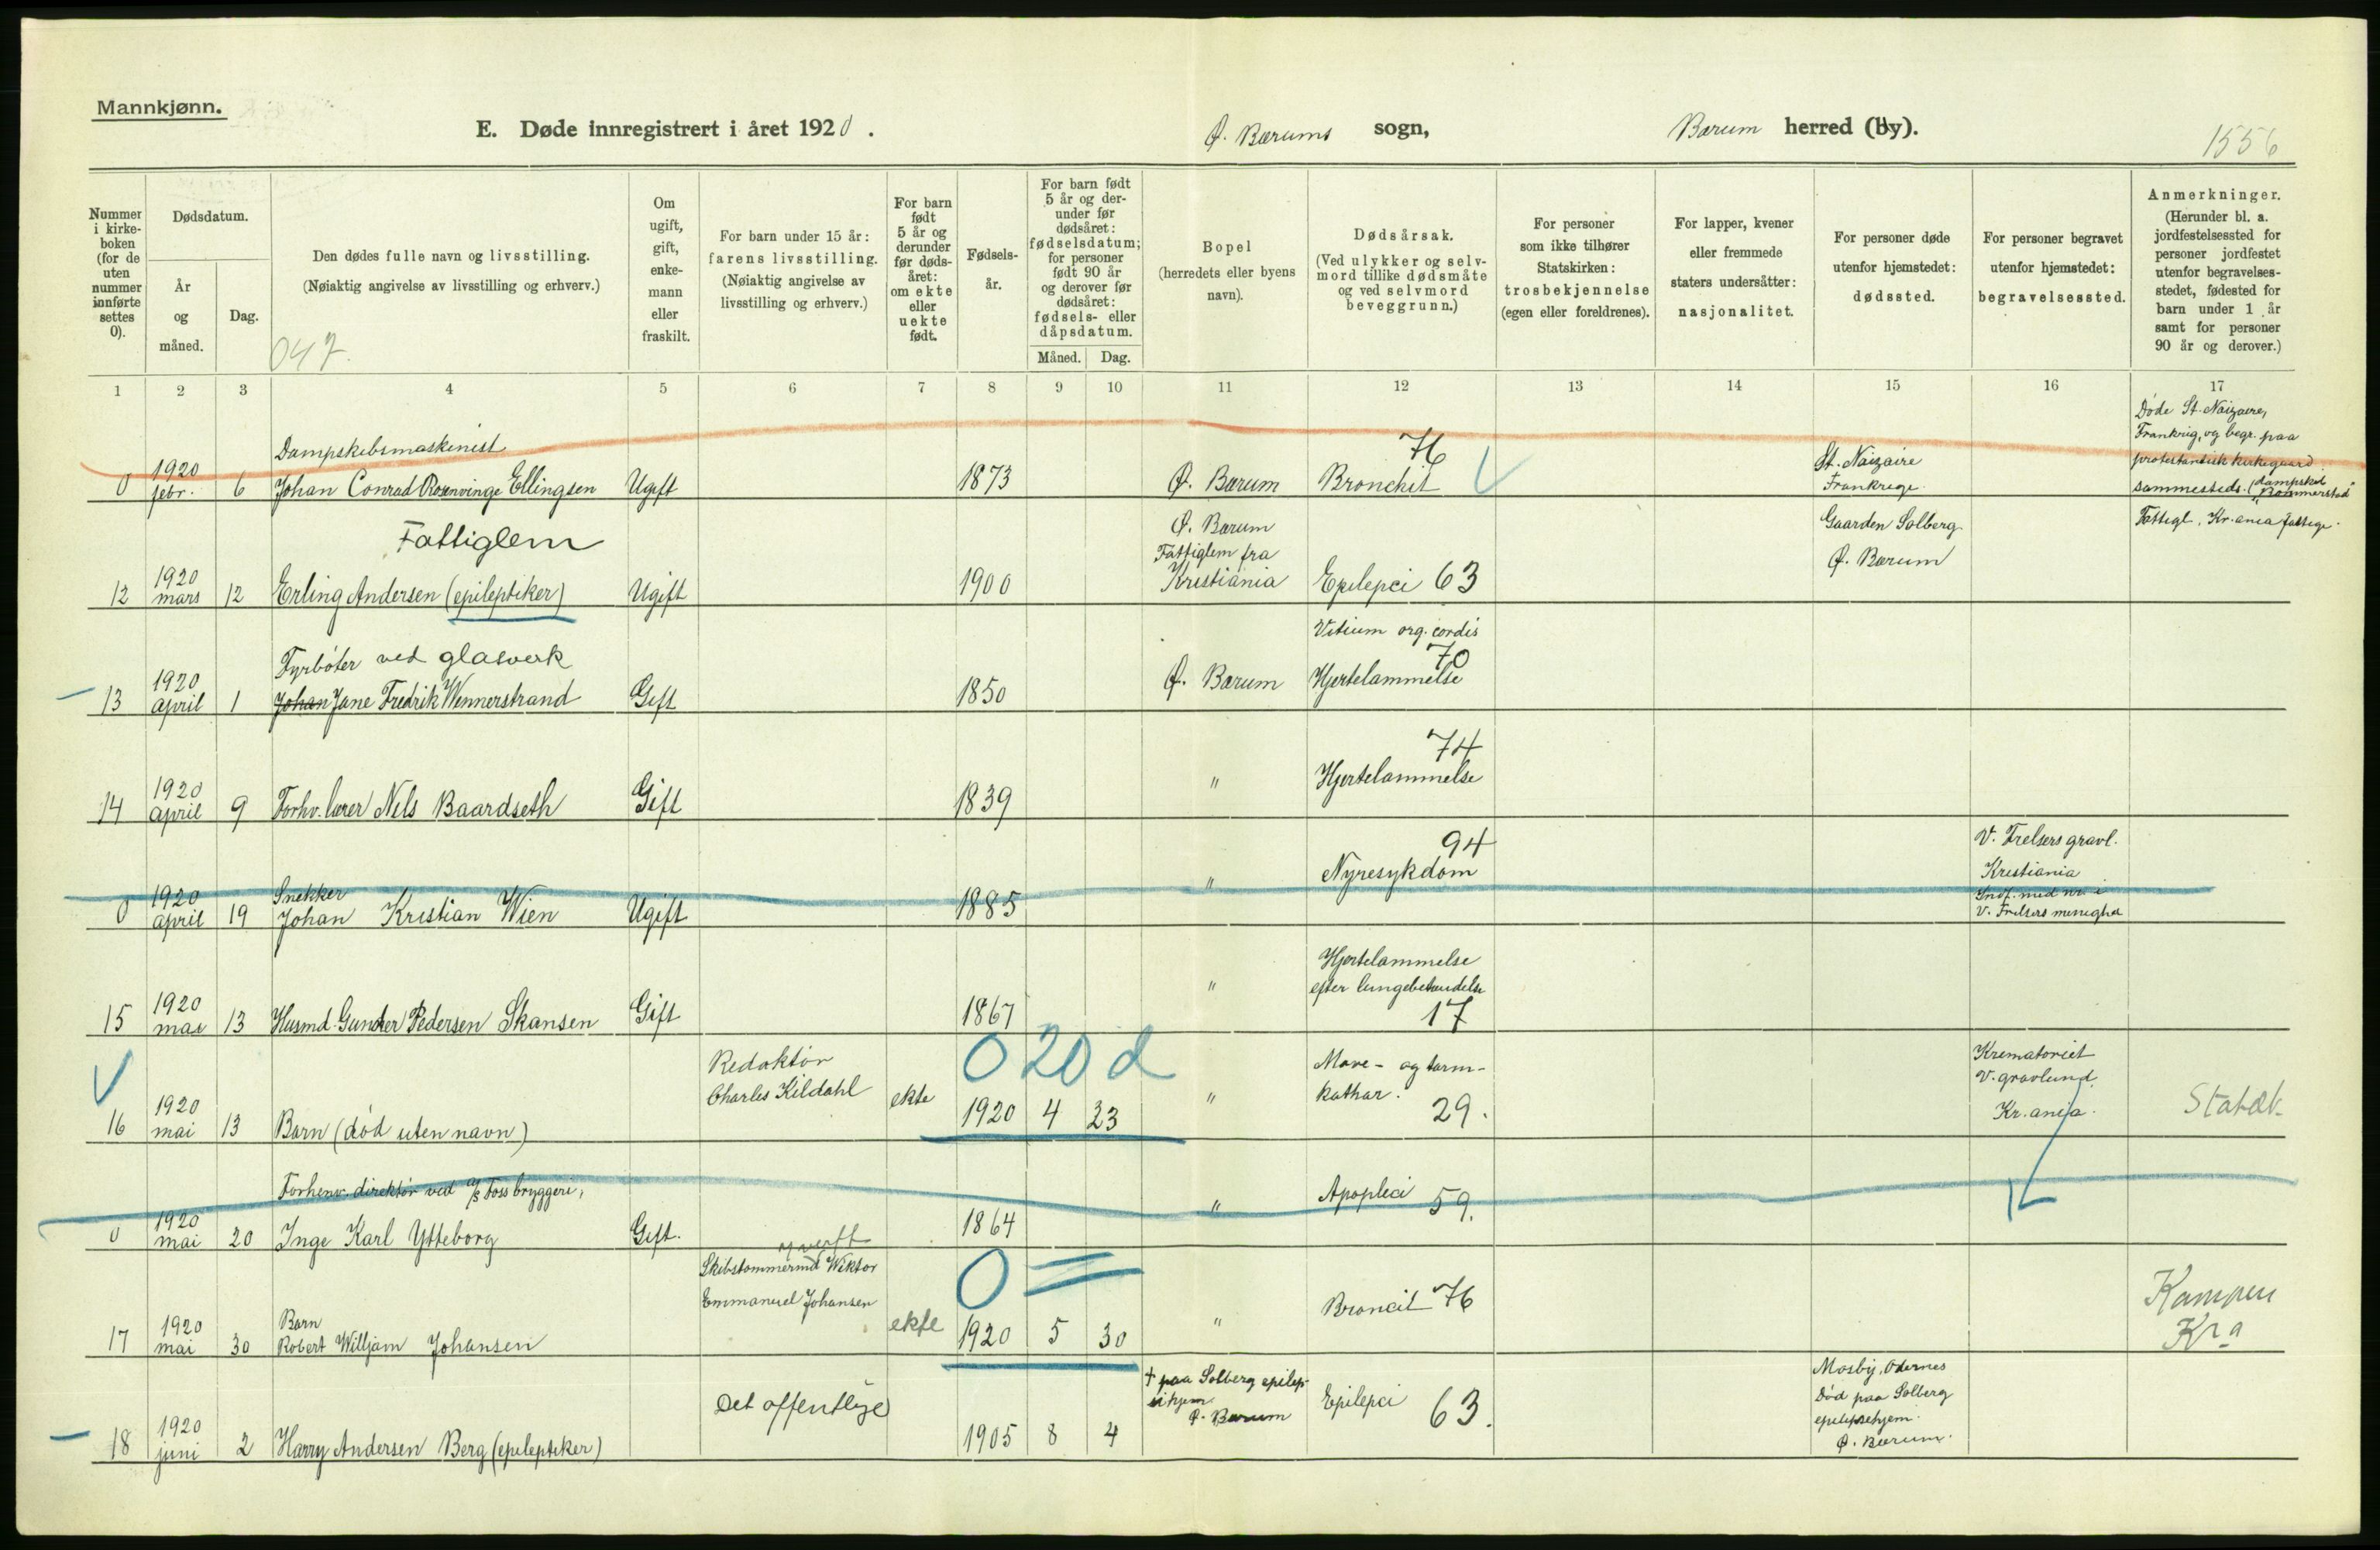 Mannkjønn.
E. Døde innregistrert i året 1920.
Ø. Bærums sogn,
Bærum herred (by).
1556
Nummer i kirke-boken (for de uten nummer innførte settes 0).
Dødsdatum.
År og måned.
Dag.
Den dødes fulle navn og livsstilling.
(Nøiaktig angivelse av livsstilling og erhverv.)
047.
Om ugift, gift, enke-mann eller fraskilt.
For barn under 15 år: farens livsstilling. (Nøiaktig angivelse av livsstilling og erhverv.)
For barn født 5 år og derunder før døds-året: om ekte eller uekte født.
Fødsels-år.
For barn født 5 år og der-under før dødsåret: fødselsdatum; for personer født 90 år og derover før dødsåret: fødsels- eller dåpsdatum.
Måned. Dag.
Bopel (herredets eller byens navn).
Dødsårsak. (Ved ulykker og selv-mord tillike dødsmåte og ved selvmord beveggrunn.)
For personer som ikke tilhører Statskirken: trosbekjennelse (egen eller foreldrenes).
For lapper, kvener eller fremmede staters undersåtter: nasjonalitet.
For personer døde utenfor hjemstedet: dødssted.
For personer begravet utenfor hjemstedet: begravelsessted.
Anmerkninger. (Herunder bl. a. jordfestelsessted for personer jordfestet utenfor begravelses-stedet, fødested for barn under 1 år samt for personer 90 år og derover.)
1 2 3 4 5 6 7 8 9 10 11 12 13 14 15 16 17
0 1920 febr. 6 Dampskibsmaskinist
Johan Conrad Rosenvinge Ellingsen Ugift 1873 Ø. Bærum Bronchit 76
St. Naizaire Frankrige.
Døde St. Naizaire,
Frankrig, og begr. paa
protestantisk kirkegaard
sammesteds. (dampskib "Rommerstad"
12 1920 mars 12 Fattiglem
Erling Andersen (epileptiker) Ugift 1900
Ø. Bærum
Fattiglem fra
Kristiania
Epilepci 63
Gaarden Solberg
Ø. Bærum
Fattigl. Kr.ania fattige.
13 1920 april 1 Fyrbøter ved glasverk
Johan Jane Fredrik Wennerstrand Gift 1850 Ø. Bærum
Vitium org. cordis
70
Hjertelammelse
14 1920 april 9 Forhv. lærer Nils Baardseth Gift 1839 " Hjertelammelse 74
0 1920 april 19 Snekker
Johan Kristian Wien Ugift 1885 " Nyresykdom 94
V. Frelsers gravl.
Kristiania
Indf. med nr. i
V. Frelsers menighet
15 1920 mai 13 Husmd. Gunder Pedersen Skansen Gift 1867 "
Hjertelammelse
efter lungebetændelse
17
16 1920 mai 13 Barn (død uten navn)
Redaktør
Charles Kildahl
ekte 020d
1920 4 23 "
Mave- og tarm-
kathar. 29.
Krematoriet
V. gravlund
Kr.ania.
Stabæk
0 1920 mai 20 Forhenv. direktør ved a/s Foss bryggeri,
Inge Karl Ytteborg Gift. 1864 " Apoplexi 59.
17 1920 mai 30 Barn
Robert Willjam Johansen
Skibstømmermd Wiktor
Emmanuel Johansen
ekte 0 =
1920 5 30 " Broncit 76
Kampen
Kr.a
18 1920 juni 2 Harry Andersen Berg (epileptiker)
Det offentlige
1905 8 4
+ paa Solberg epilep-
sihjem.
Ø. Bærum
Epilepci 63.
Mosby, Odernes
Død paa Solberg
epilepsihjem.
Ø. Bærum.